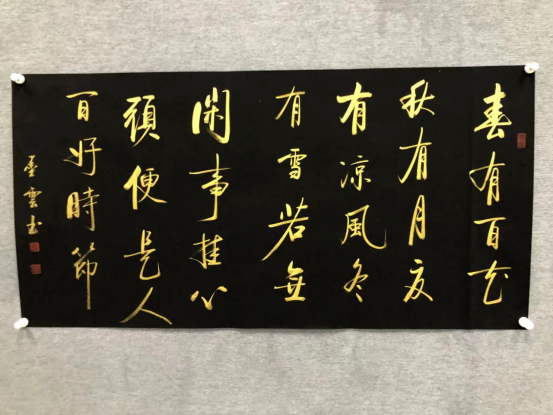 春有百花
秋有月夏
有凉風冬
有雪若無
閑事挂心
頭便是人
間好時節
墨雲书